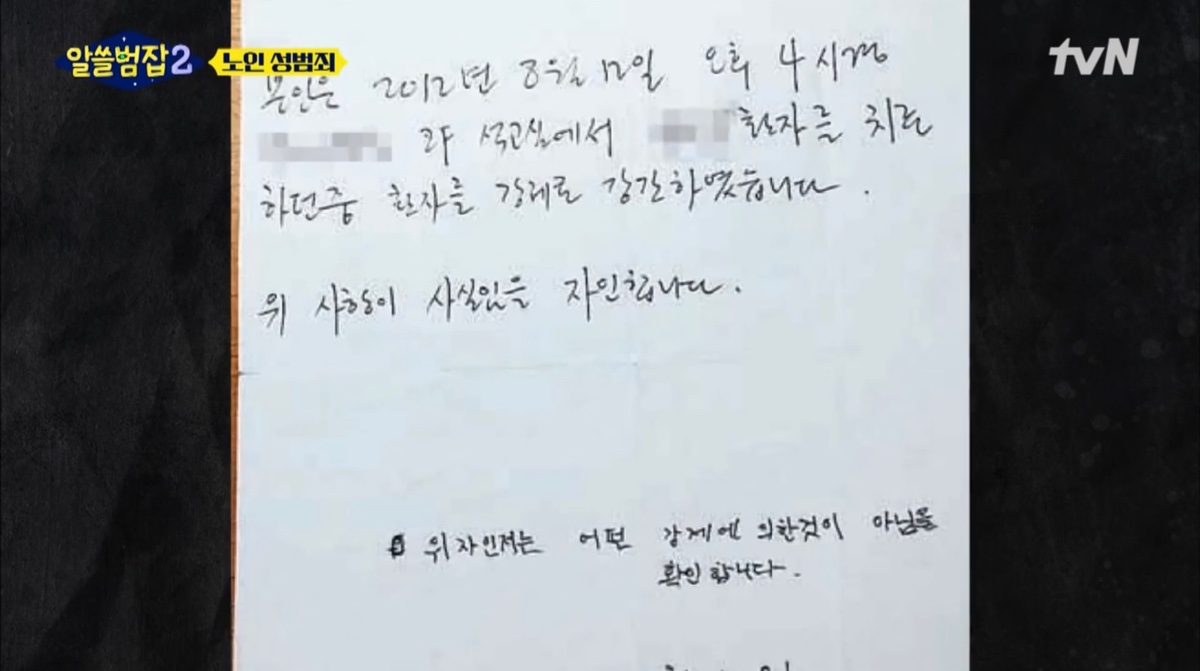 알쓸범잡2
노인 성범죄
tvN
본인은 2012년 8월 12일 오후 4시경
과 석고실에서 환자를 치료
하던중 환자를 강제로 강간하였습니다.
위 사항이 사실임을 자인합니다.
위 자인서는 어떤 강제에 의한것이 아님을
확인 합니다.